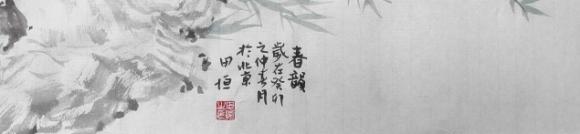 春韻
歲在癸卯
之仲春月
於北京
田恒